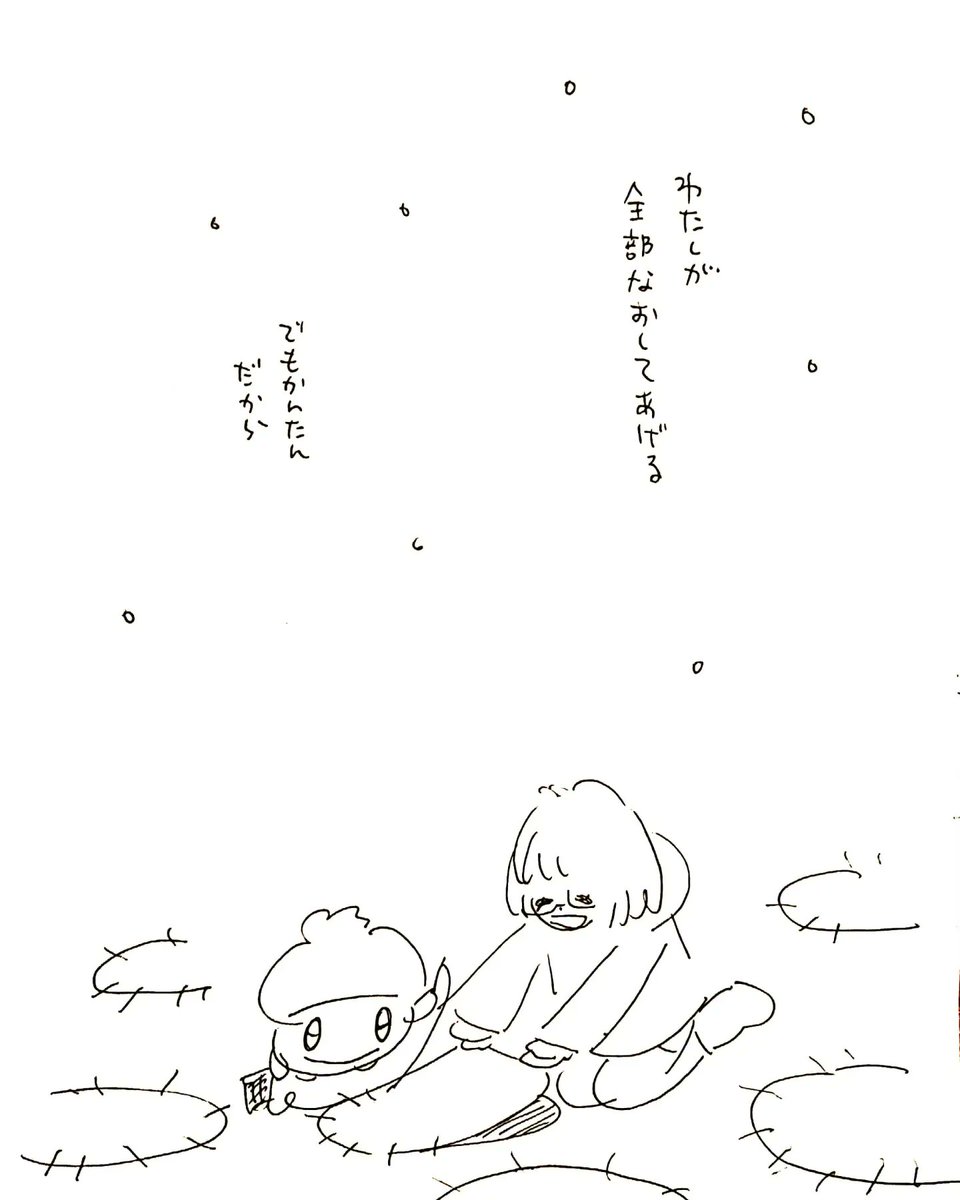 わたしが
全部なおしてあげる
でもかんたん
だから